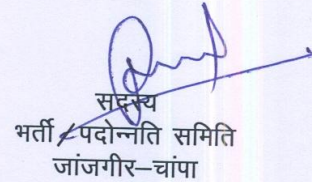 सदस्य
भर्ती / पदोन्नति समिति
जांजगीर–चांपा